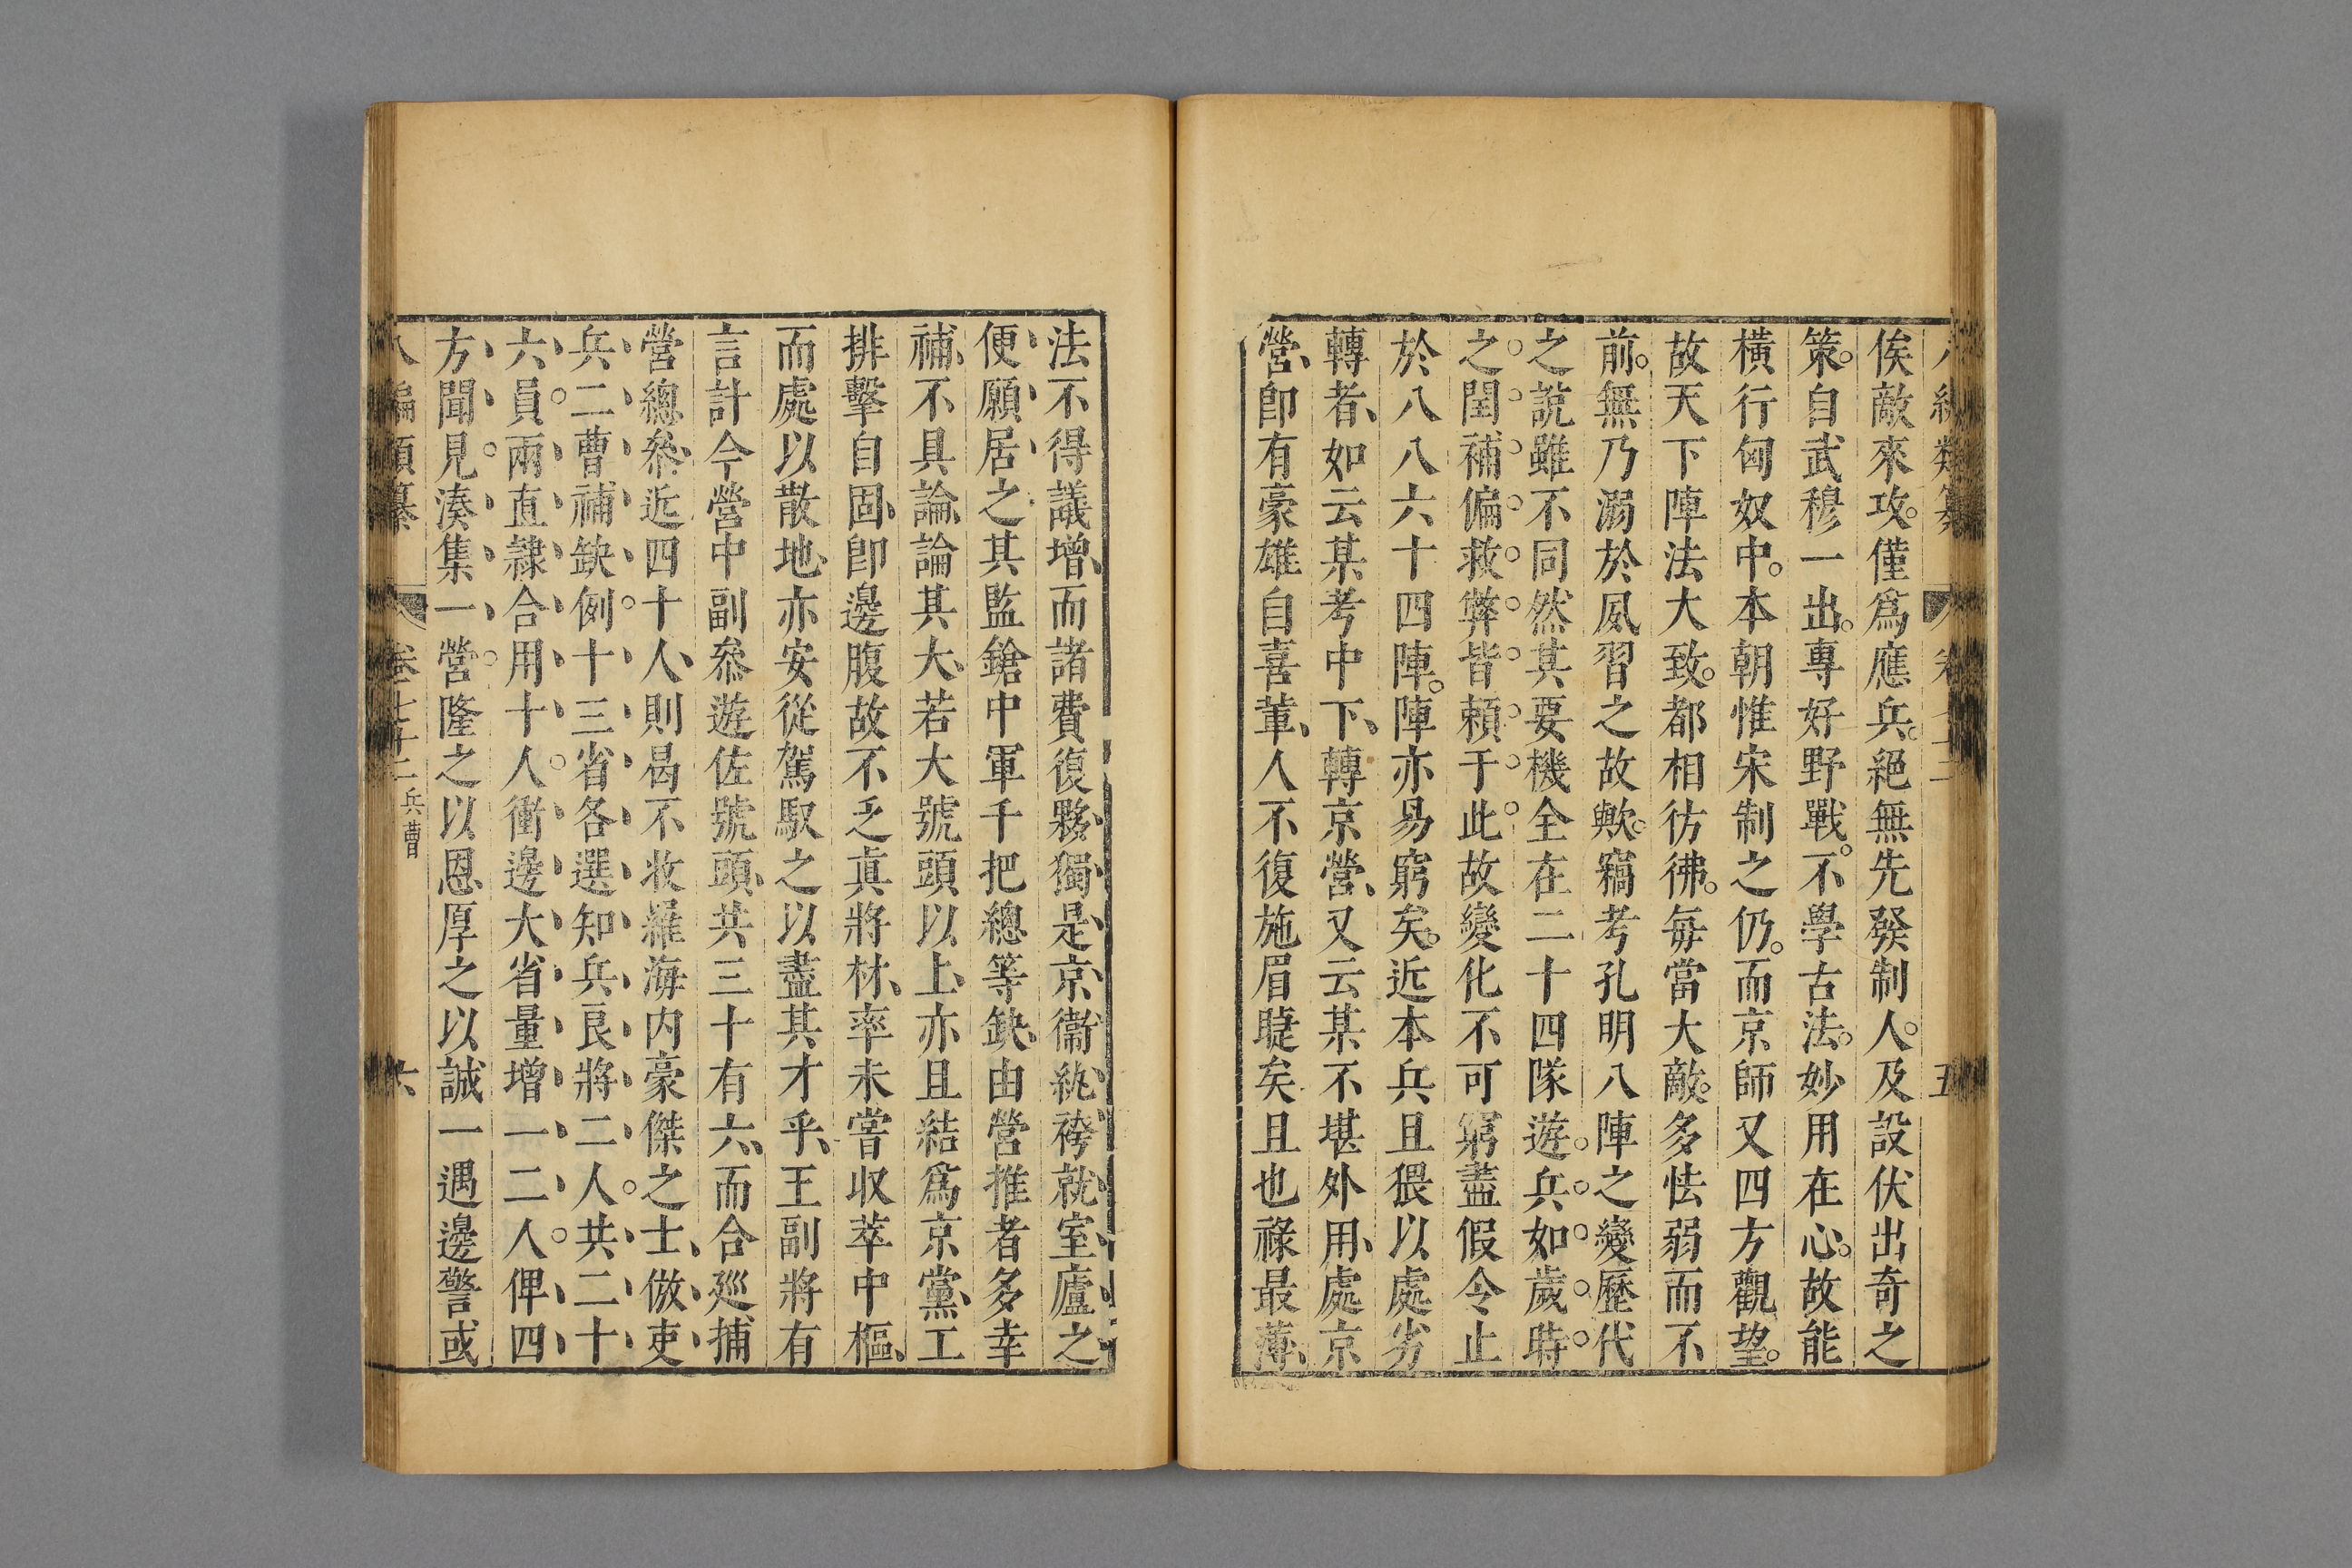 俟敵來攻。僅爲應兵。絕無先發制人。及設伏出奇之
策。自武穆一出。專好野戰。不學古法。妙用在心。故能
橫行匈奴中。本朝惟宋制之仍。而京師又四方觀望。
故天下陣法大致。都相彷彿。每當大敵。多怯弱而不
前。無乃溺於夙習之故歟。竊考孔明八陣之變歷代
之說雖不同然其要機全在二十四隊遊兵如歲時
之閏補偏救弊皆賴于此故變化不可窮蓋假令止
於八八六十四陣。陣亦易窮矣。近本兵且猥以處劣
轉者、如云某考中下、轉京營、又云某不堪外用、處京
營、卽有豪雄自喜輩、人不復施眉睫矣且也祿最薄、
法不得議增、而諸費復夥、獨是京衞紈袴就室廬之
便願居之其監鎗中軍千把總等缺、由營推者多幸
補、不具論、論其大、若大號頭以上、亦且結爲京黨、工
排擊自固、卽邊腹故不乏眞將材、率未嘗収萃中樞、
而處以散地、亦安從駕馭之以盡其才乎、王副將有
言計今營中副叅遊佐號頭、共三十有六、而合廵捕
營總叅、近四十人、則曷不收羅海內豪傑之士、倣吏
兵二曹補缺例十三省各選知兵良將二人共二十
六員兩直隷合用十人衝邊大省量增一二人俾四
方聞見湊集一營隆之以恩厚之以誠一遇邊警或
八編類纂 卷七十二 兵曹 六